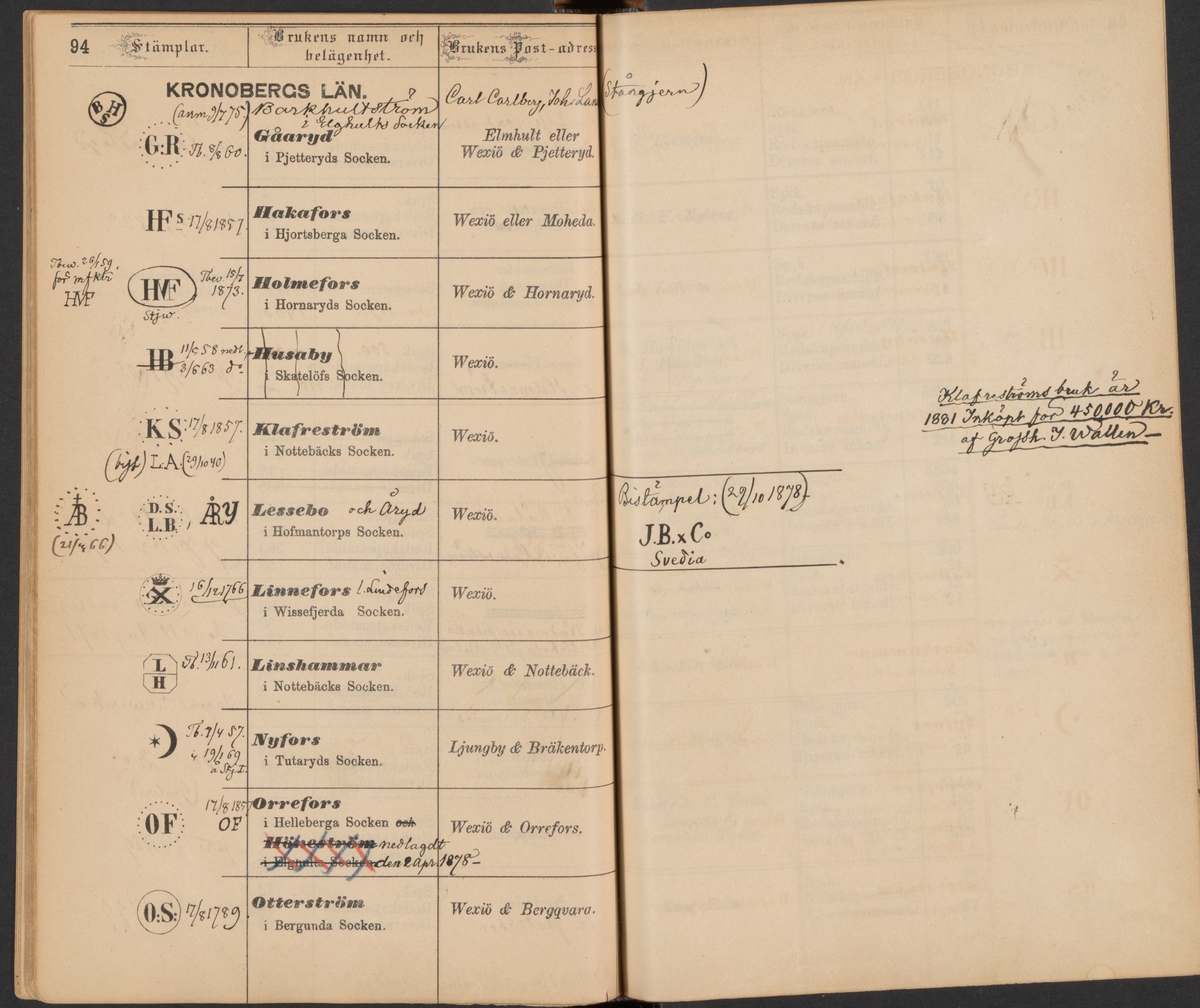 94
Stämplar.
Brukens namn och
belägenhet.
Brukens Post-adress
KRONOBERGS LÄN.
BHS
(anm. 9/7 75)
Barkhultström
i Elghults Socken
Carl Carlberg, Joh.
(Stångjern)
G:R
Tb. 8/8 60.
Gåaryd
i Pjetteryds Socken.
Elmhult eller
Wexiö & Pjetteryd.
HF s 17/8 1857.
Hakafors
i Hjortsberga Socken.
Wexiö eller Moheda.
26/1 59.
för mfktr
HMF
HMF
15/7
1873.
Stjw.
Holmefors
i Hornaryds Socken.
Wexiö & Hornaryd.
HB
11/5 58 nedl.
3/6 63 do
Husaby
i Skatelöfs Socken.
Wexiö.
KS 17/8 1857.
L.A. (29/10 40)
Klafreström
i Nottebäcks Socken.
Wexiö.
Klafreströms bruk är
1881 Inköpt för 450,000 Kr.
af Grossh. J. Wallen
ÅB
(21/4 66)
D.S.
L.B.
, ÅRY
Lessebo och Åryd
i Hofmantorps Socken.
Wexiö.
Bistämpel: (29/10 1878)
J.B. x Co
Svedia
16/12 1766
Linnefors l. Lindefors
i Wissefjerda Socken.
Wexiö.
L
H
Tb. 13/11 61.
Linshammar
i Nottebäcks Socken.
Wexiö & Nottebäck.
Tb. 7/4 57.
19/1 69
Nyfors
i Tutaryds Socken.
Ljungby & Bräkentorp.
OF
17/8 1857
OF
Orrefors
i Helleberga Socken och
Höneström nedlagdt
i Elghults Socken den 2 Apr. 1878
Wexiö & Orrefors.
O:S:
17/8 1789
Otterström
i Bergunda Socken.
Wexiö & Bergqvara.